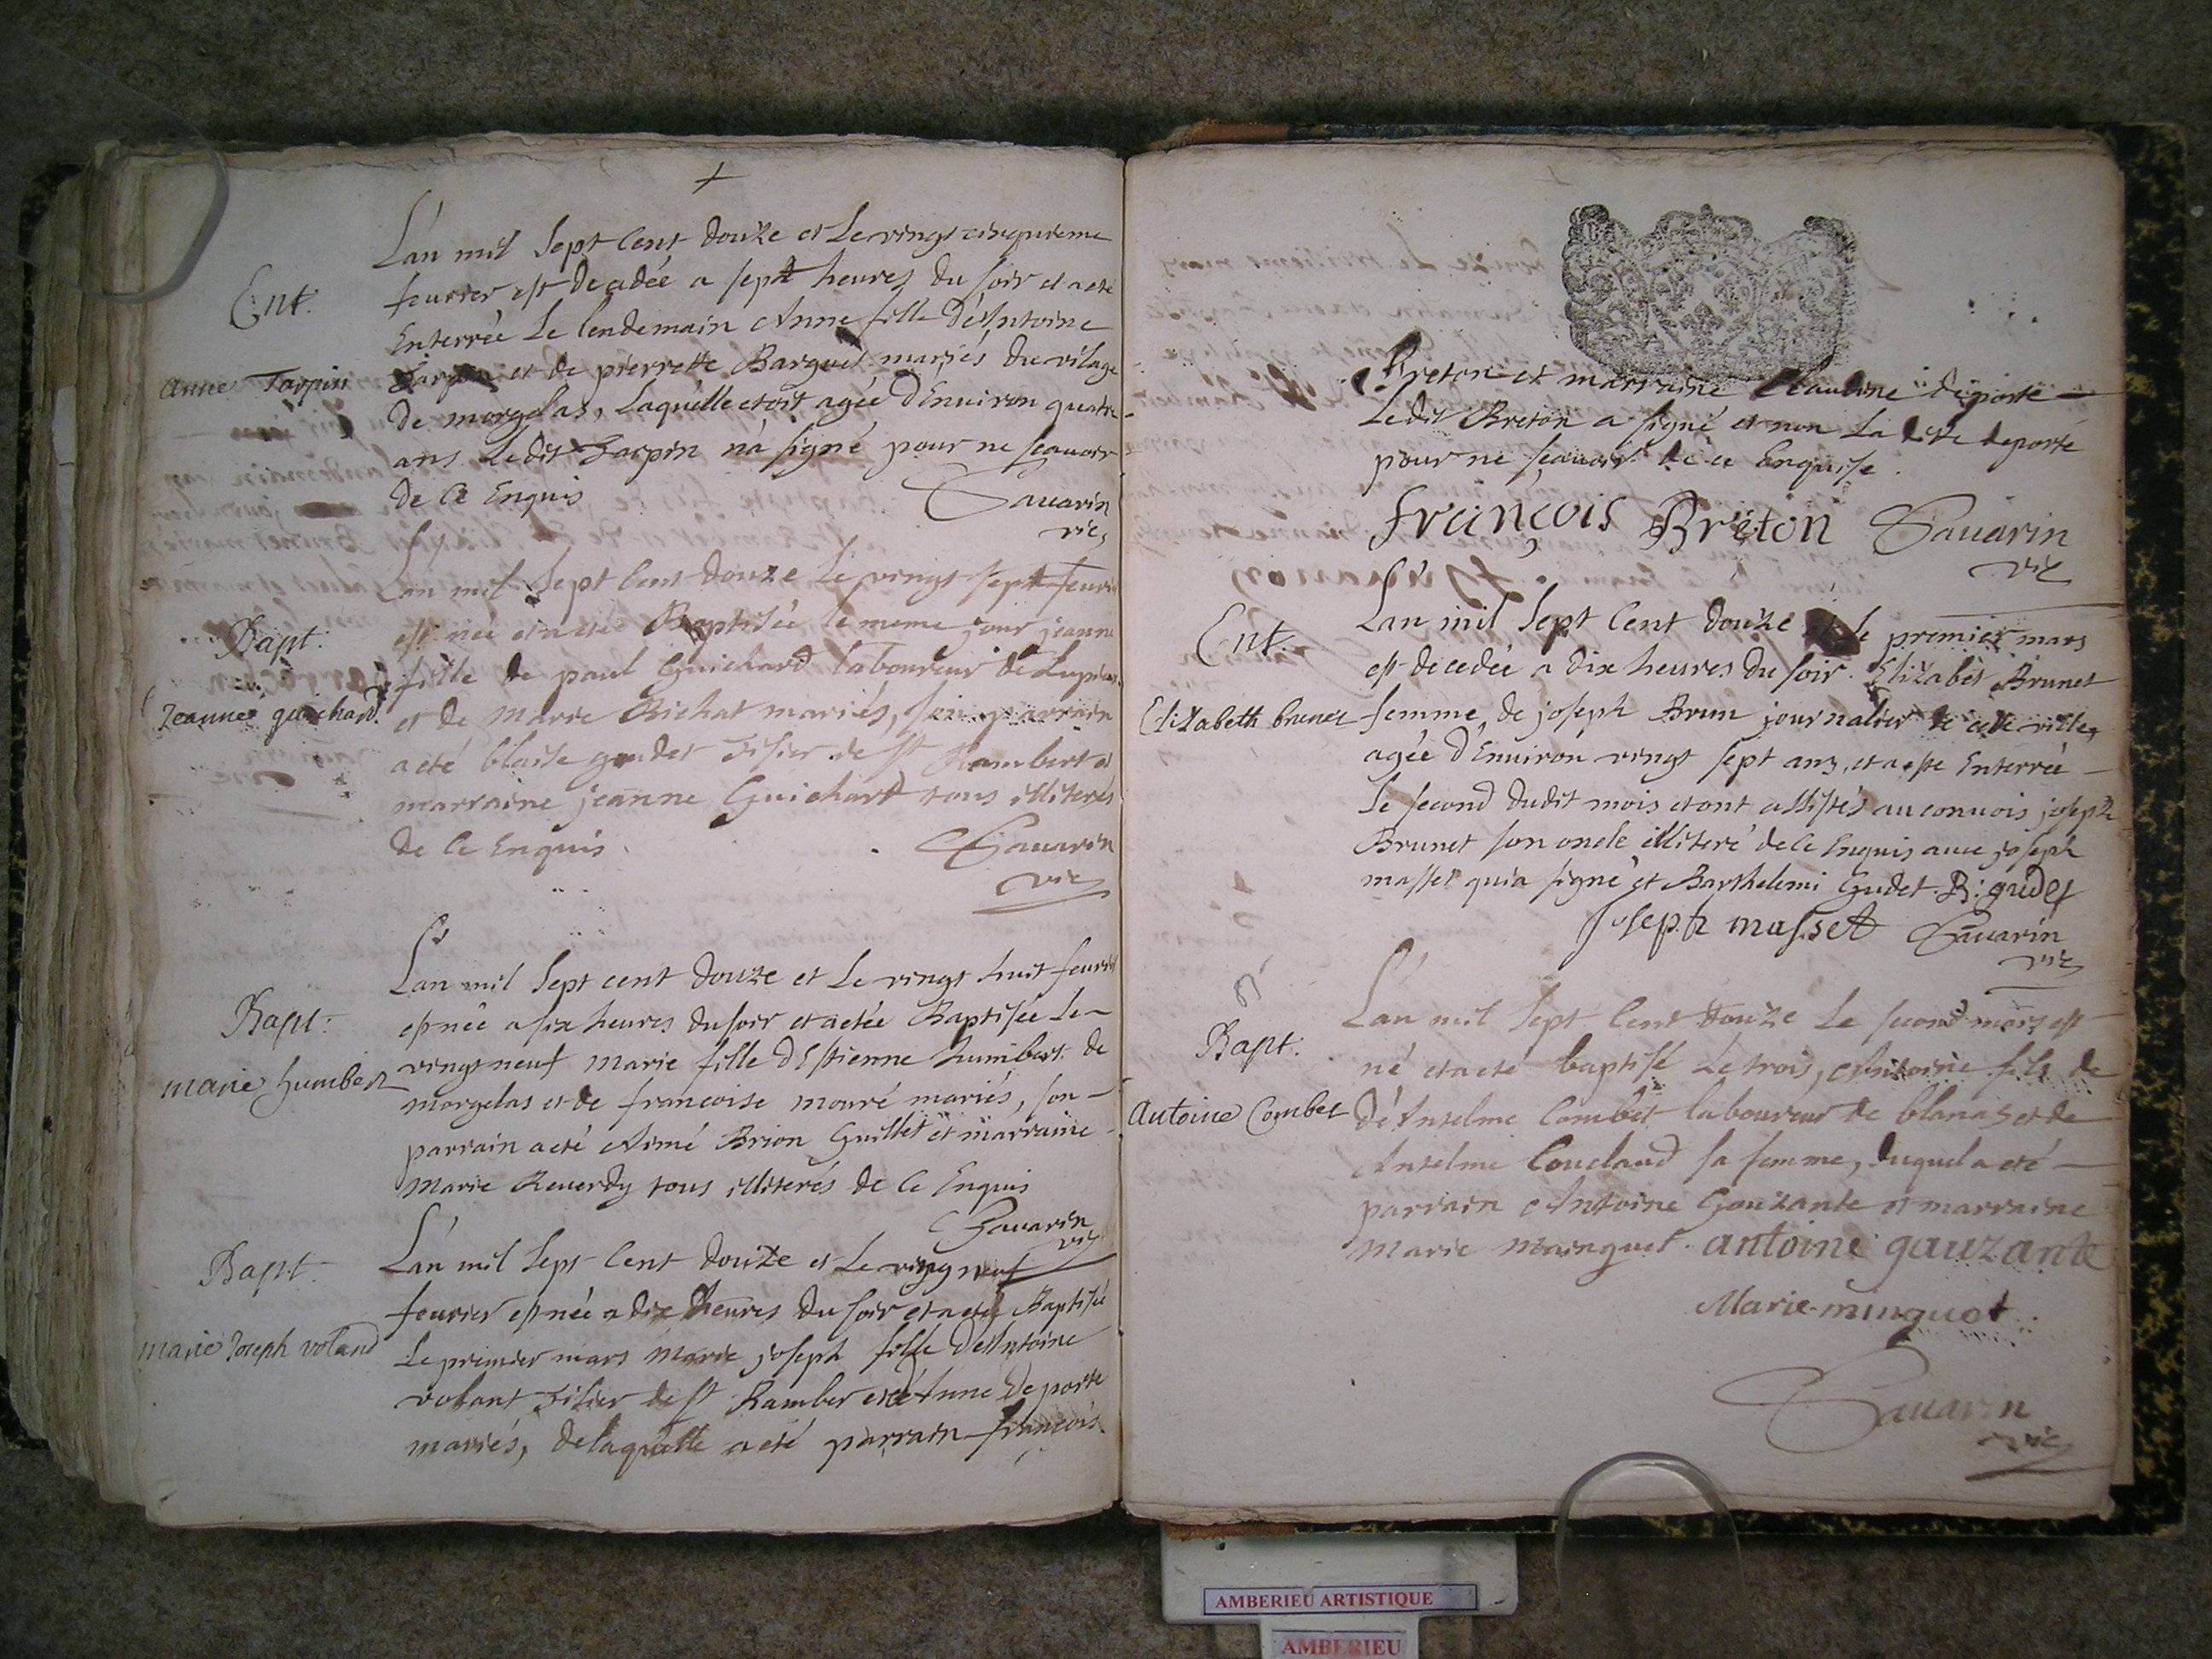 +
L'an mil sept cent douze et le vingt cinquieme
Ent.
feurier est decedée a sept heures du soir et a eté
Enterrée Le lendemain Anne fille d'Antoine
anne Tarpin
Tarpin et de pierrette Barguet mariés du vilage
de morgelas, Laquelle etoit agée d'Enuiron quatre
ans Ledit Tarpin n'a signé pour ne scauoir
de ce Enquis Sauarin
vic
L'an mil sept cent douze Le vingt sept feurier
Bapt.
est née et a eté Baptisée le meme jour jeanne
fille de paul Guichard laboureur de
Jeanne guichard
et de Marie Richat mariés, son parrain
a eté blaise gudet Tisier de st Rambert et
marraine jeanne Guichard tous illiterés
de ce Enquis. Sauarin
vic
L'an mil sept cent douze et Le vingt huit feurier
Bapt.
est née a six heures du soir et a etée Baptisée Le
vingt neuf Marie fille d'Estienne humbert de
marie humbert
morgelas et de francoise mouré mariés, son
parrain a eté Aimé Brion Guillet et marraine
Marie Reuerdy tous illiterés de ce Enquis
Sauarin
vic
Bapt.
L'an mil sept cent douze et Le vingt neuf
feurier est née a dix heures du soir et a eté Baptisée
marie Joseph voland
Le premier mars Marie joseph fille d'Antoine
volant Tisier de st Ramber et d'Anne Deporte
mariés, de laquelle a eté parrain francois
Breton et marraine Claudine deporte
Ledit Breton a signé et non La ditte deporte
pour ne scauoir de ce Enquise.
françois Breton Sauarin
vic
Ent.
L'an mil sept cent douze et le premier mars
est decedée a dix heures du soir Elizabet Brunet
Elizabeth brunet
femme de joseph Brun journalier de cete ville,
agée d'Enuiron vingt sept ans, et a esté Enterrée
Le second dudit mois et ont assistés au conuois joseph
Brunet son oncle illiteré de ce Enquis auec joseph
masset qui a signé et Barthelemi Gudet. B: gudet
joseph masset Sauarin
vic
L'an mil sept cent douze Le second mars est
Bapt.
né et a eté baptisé Le trois, Antoine fils de
Antoine Combet
d'Anselme Combet laboureur de blanas et de
Anselme Couclaud sa femme, duquel a eté
parrain Antoine Gouzante et marraine
Marie mainguet. antoine gauzante
Marie minguet
Sauarin
vic
AMBERIEU ARTISTIQUE
AMBERIEU